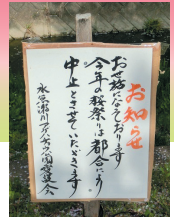 お知らせ
お世話になっております
今年の桜祭りは都合により
中止とさせていただきます